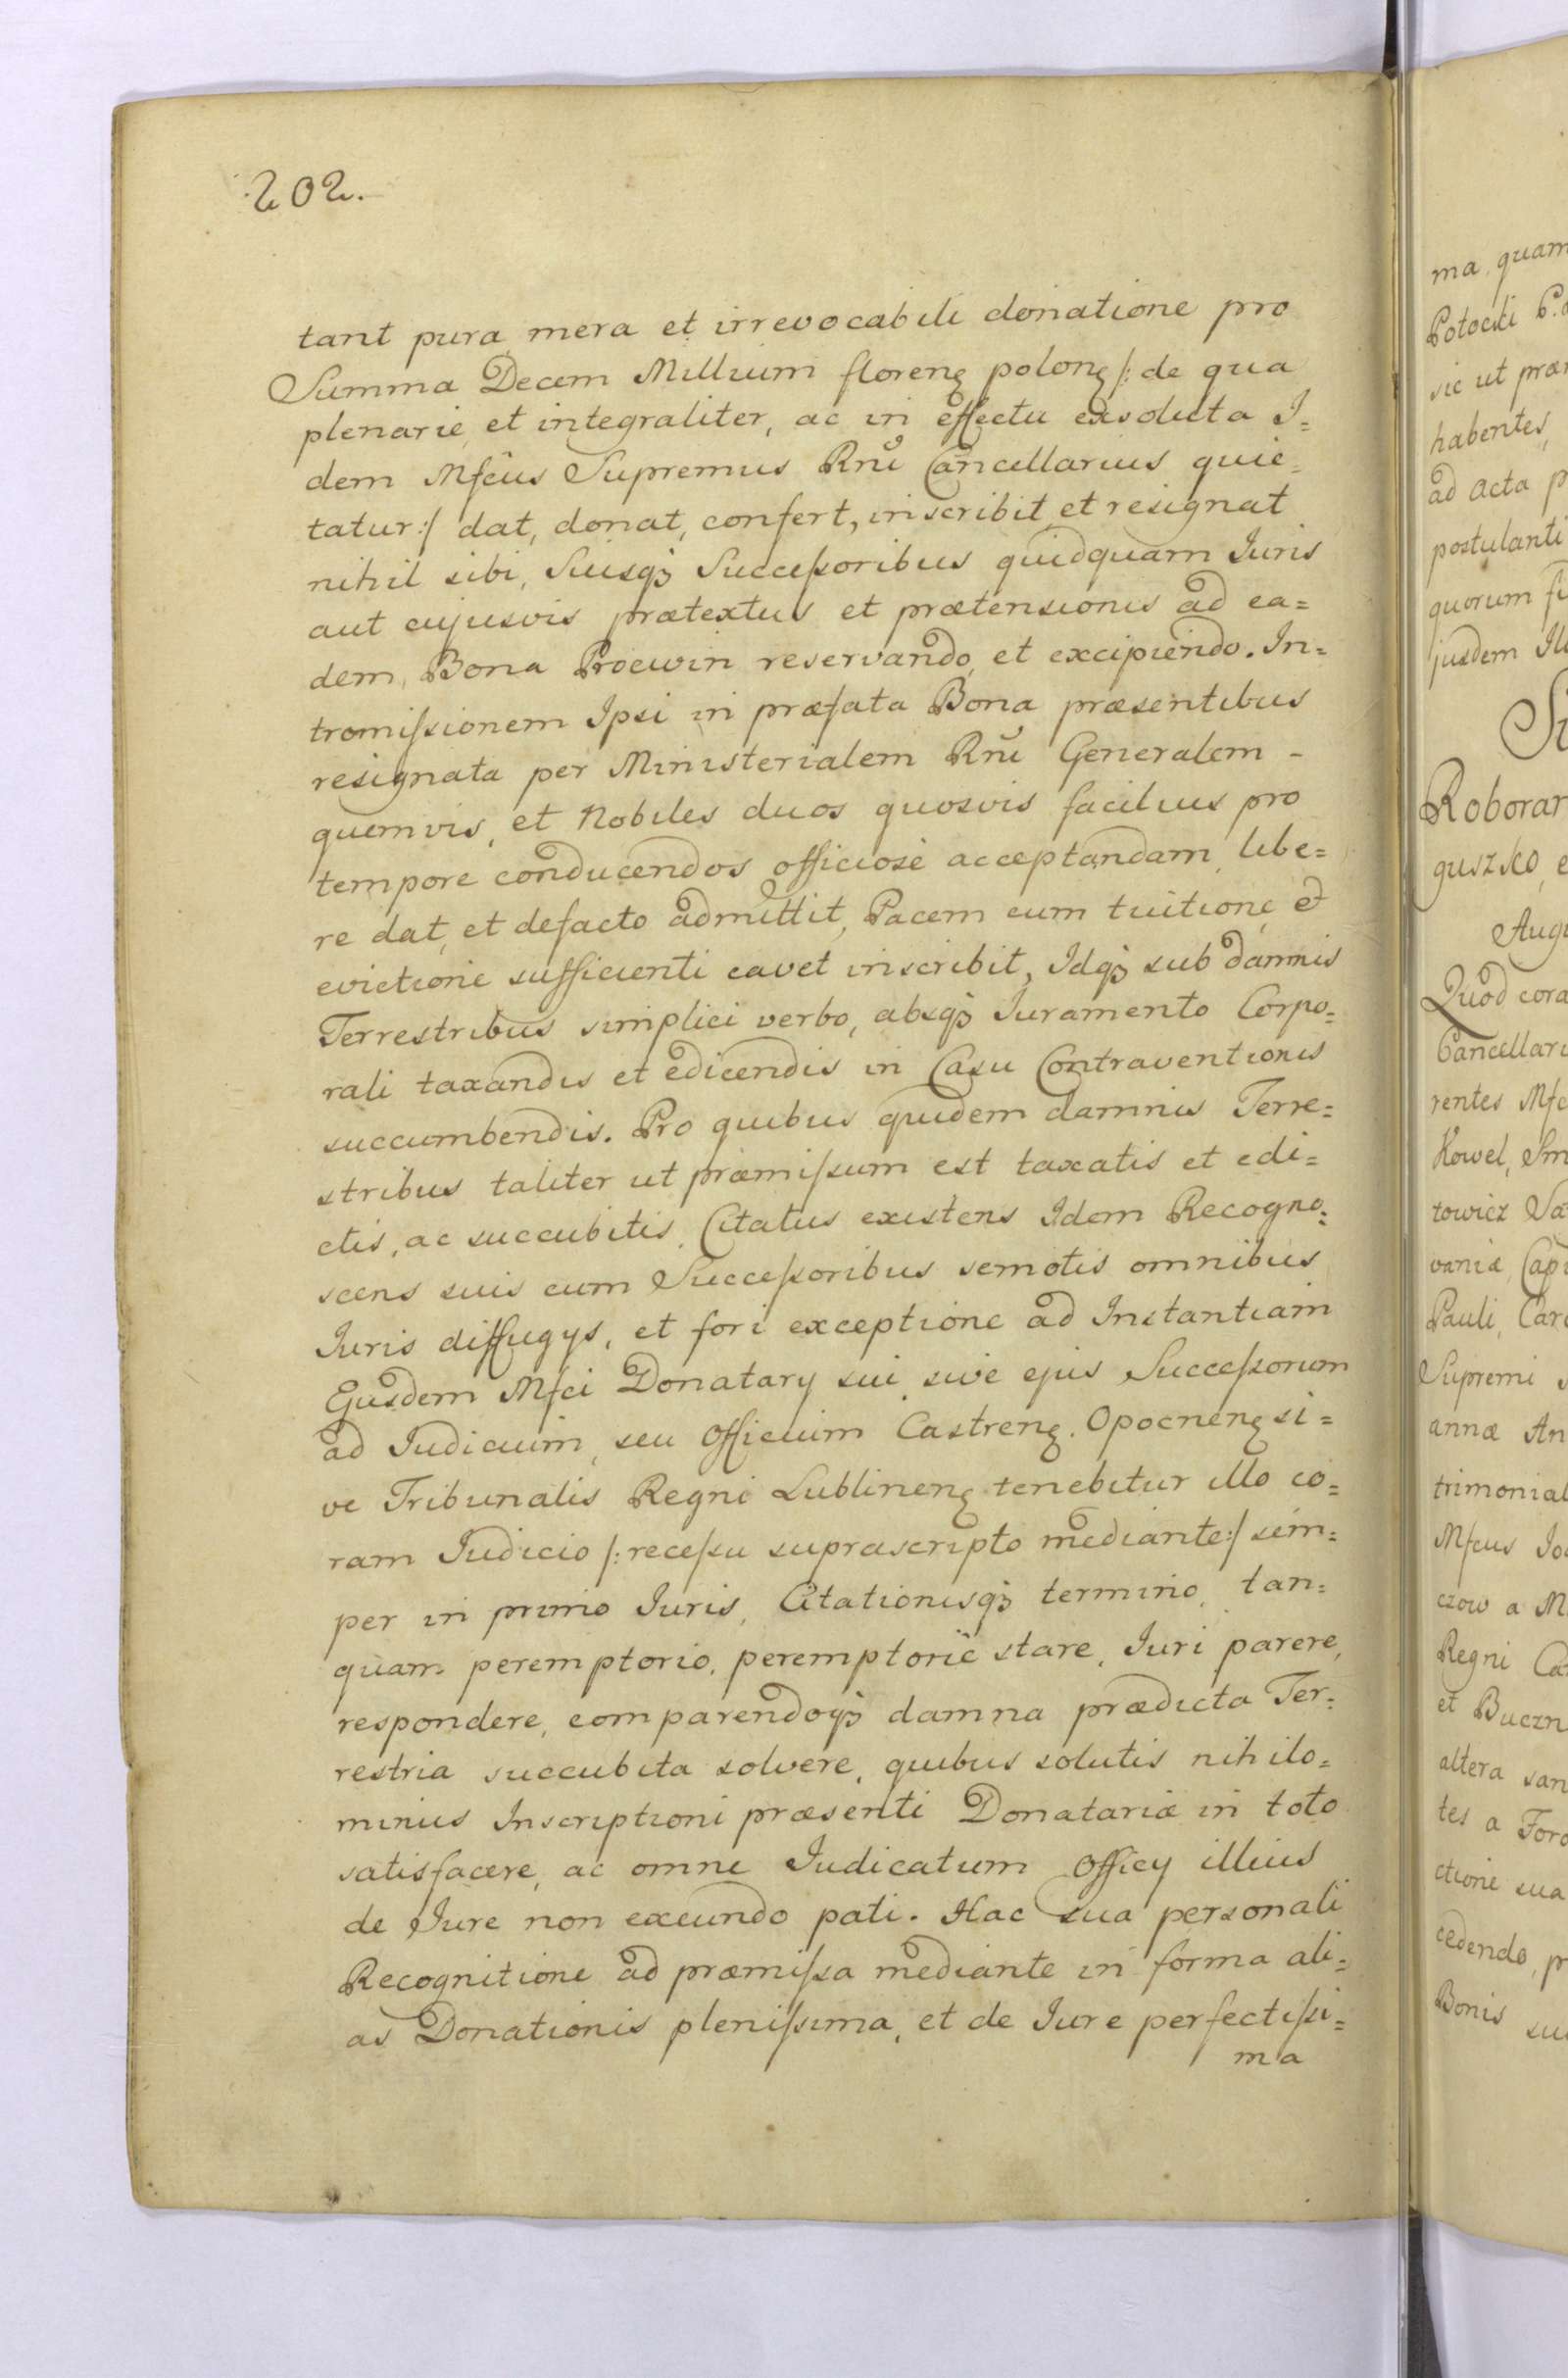 202.
tant pura mera et irrevocabili donatione pro
Summa Decem Millium florenꝫ polonꝫ /: de qua
plenarie et integraliter, ac in effectu exsoluta I=
dem Mfcus Supremus Rni Cancellarius quie=
tatur :/ dat, donat, confert, inscribit et resignat
nihil sibi, Suisqꝫ Successoribus quidquam Iuris
aut cujusvis prætextus et prætensionis ad ea=
dem Bona Proewin reservando et excipiendo. In=
tromissionem Ipsi in præfata Bona præsentibus
resignata per Ministerialem Rni Generalem -
quemvis, et Nobiles duos quosvis facilius pro
tempore conducendos officiosè acceptandam libe=
re dat, et defacto admittit, Pacem cum tuitione et
evictione sufficienti cavet inscribit, Idqꝫ sub damnis
Terrestribus simplici verbo, absqꝫ Iuramento Corpo=
rali taxandis et edicendis in Casu Contraventionis
succumbendis. Pro quibus quidem damnis Terre=
stribus taliter ut præmissum est taxatis et edi=
ctis, ac succubitis, Citatus existens Idem Recogno=
scens suis cum Successoribus semotis omnibus
Iuris diffugys, et fori exceptione ad Instantiam
Ejusdem Mfci Donatary sui sive ejus Successorum
ad Iudicium, seu Officium Castrenꝫ. Opocnenꝫ si=
ve Tribunalis Regni Lublinenꝫ tenebitur illo co=
ram Iudicio /: recessu suprascripto mediante :/ sem=
per in primo Iuris, Citationisqꝫ termino, tan=
quam peremptorio, peremptoriè stare, Iuri parere,
respondere, comparendoqꝫ damna prædicta Ter=
restria succubita solvere, quibus solutis nihilo=
minus Inscriptioni præsenti Donatariæ in toto
satisfacere, ac omne Iudicatum Officy illius
de Iure non exeundo pati. Hac sua personali
Recognitione ad præmissa mediante in forma ali=
as Donationis plenissima, et de Iure perfectissi=
ma
ma, quam
Potocki
sic ut præ
habentes,
ad acta p
postulanti
quorum
jusdem Il
Roborar
guszko, e
Augu
Quod cora
Cancellari
rentes Mfc
Kowel, Sm
towicz
vaniæ, Capi
Pauli, Car
Supremi s
annæ An
trimonial
Mfcus Jo
czow a M
Regni Ca
et Buczn
altera san
tes a Foro
ctione sua
cedendo, p
Bonis su